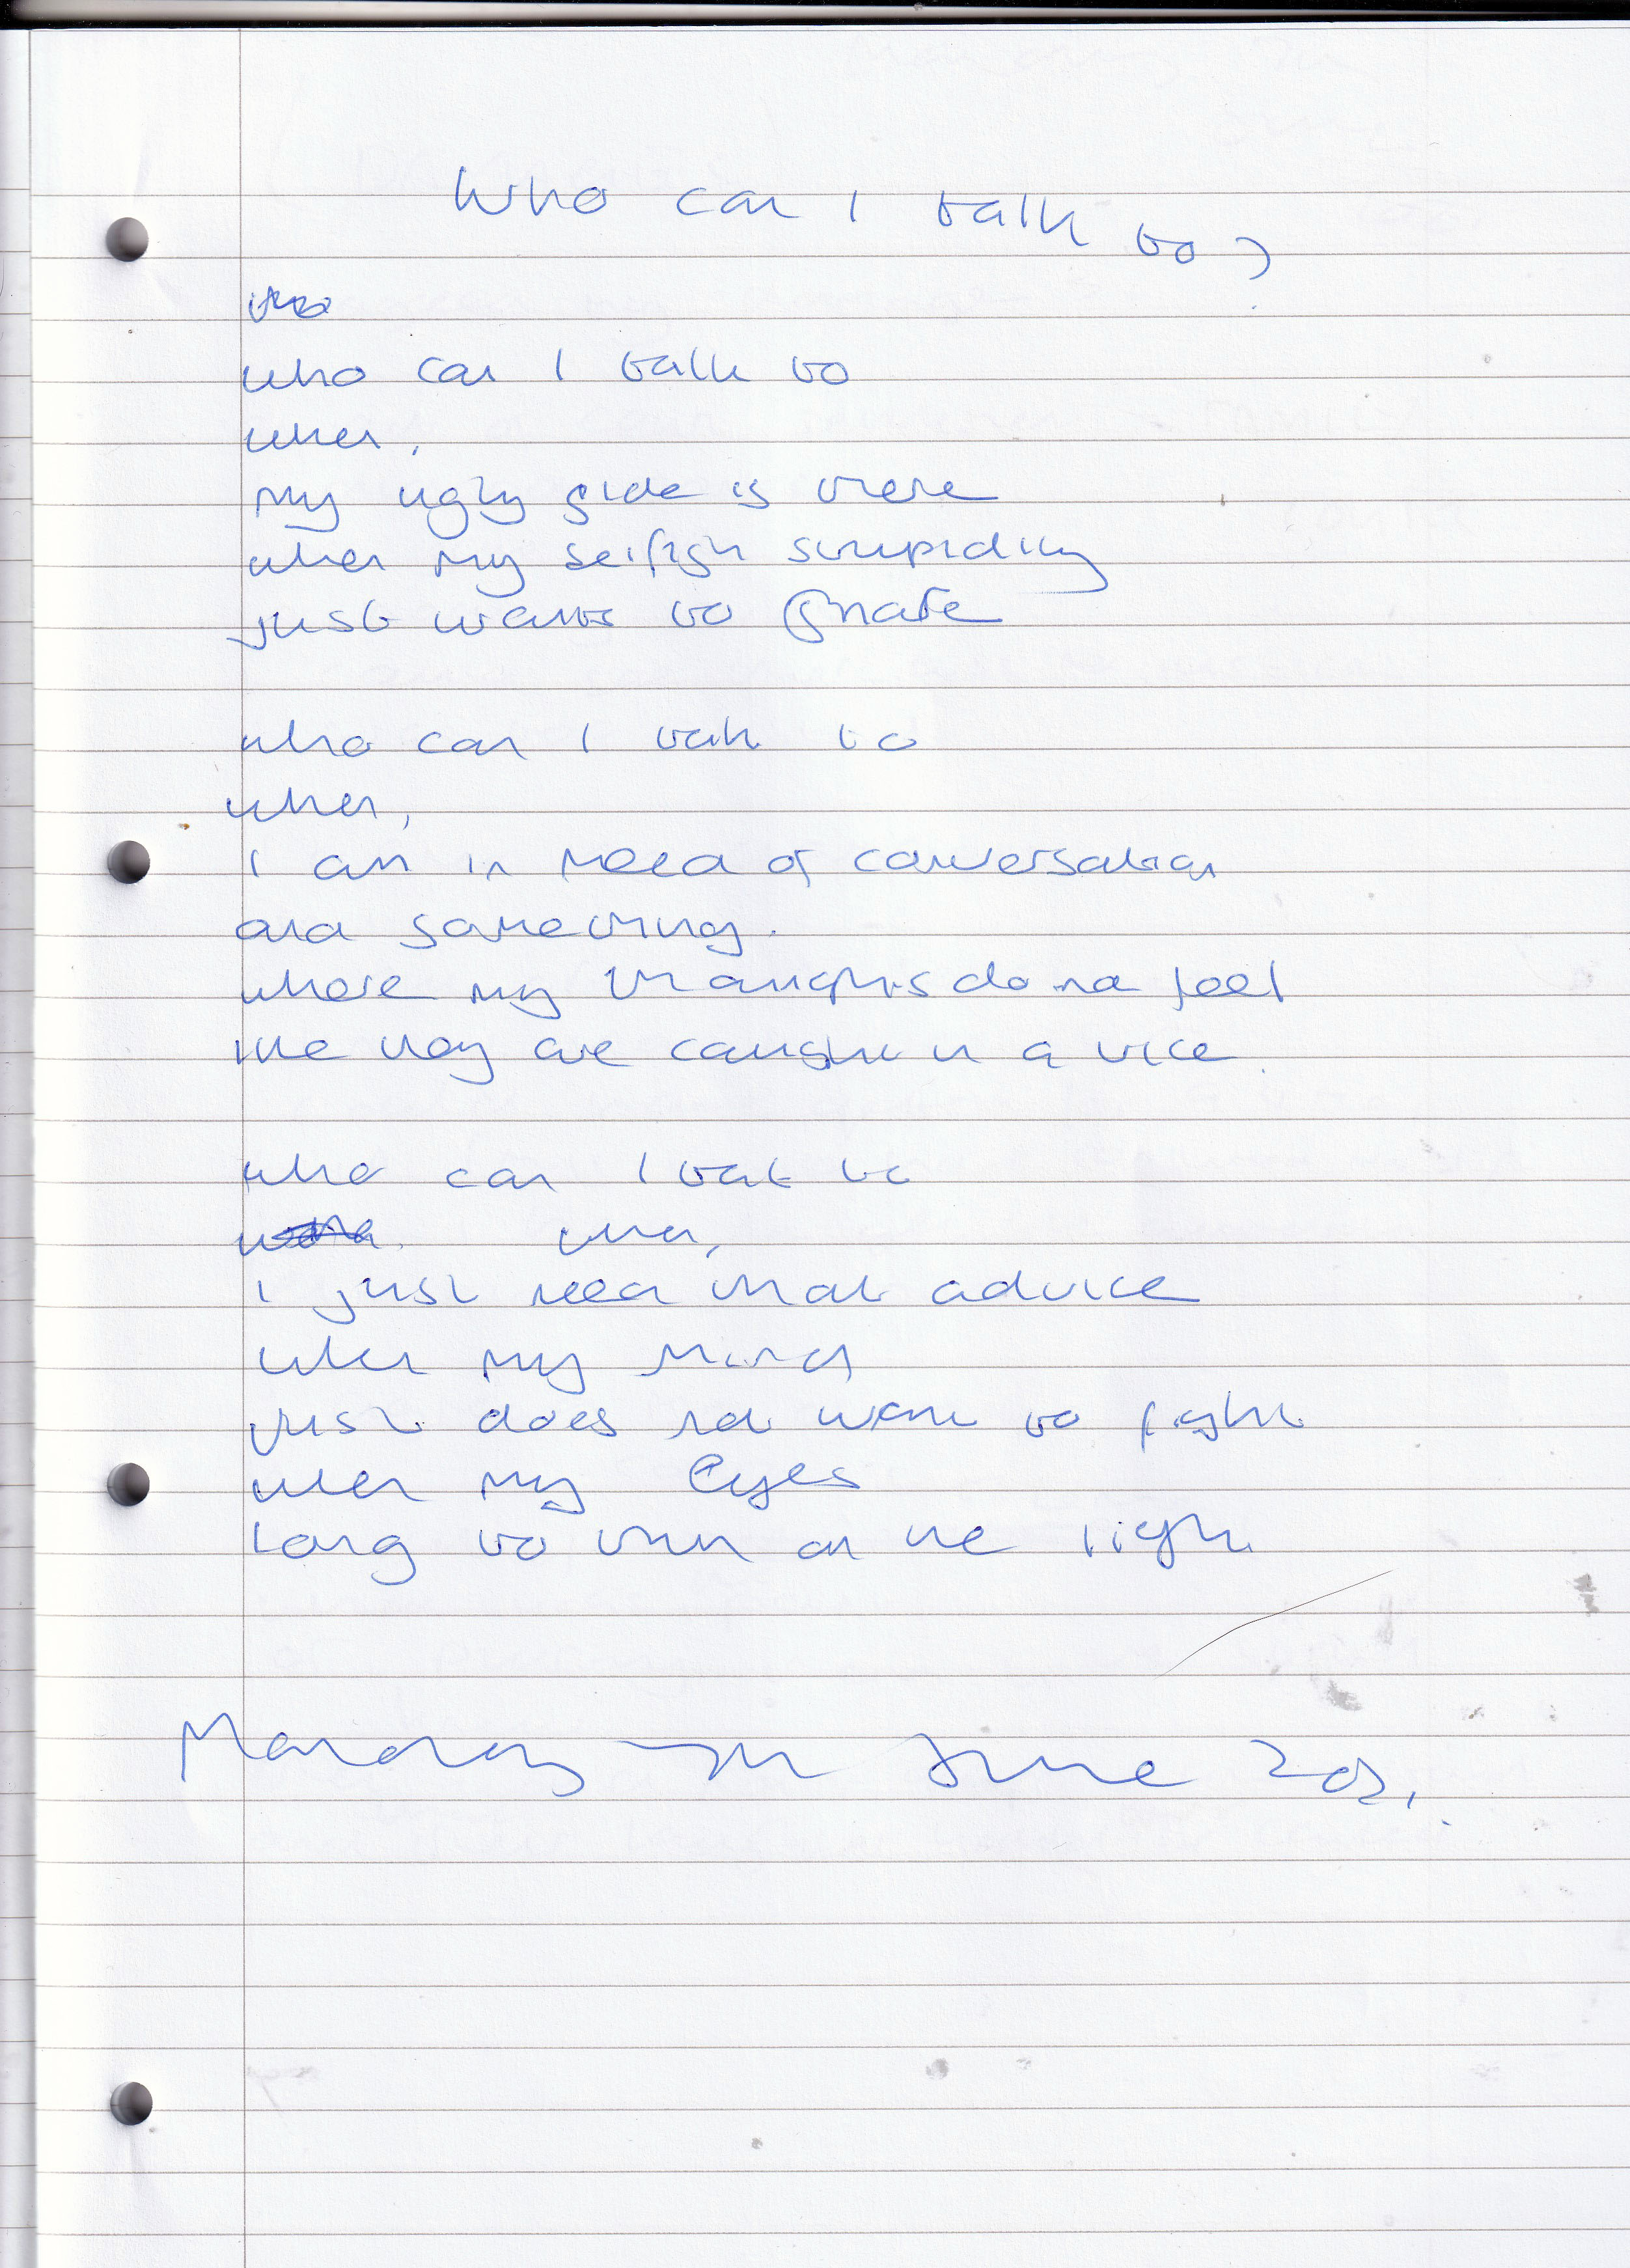 Who can I talk to?
who can I talk to
when,
my ugly side is there
when my selfish stupidity
just wants to share
who can I talk to
when,
I am in need of conversation
and something
where my thoughts do not feel
like they are caught in a vice
who can I talk to
when,
I just need that advice
when my mind
just does not want to fight
when my eyes
long to turn on the light
Monday 7th June